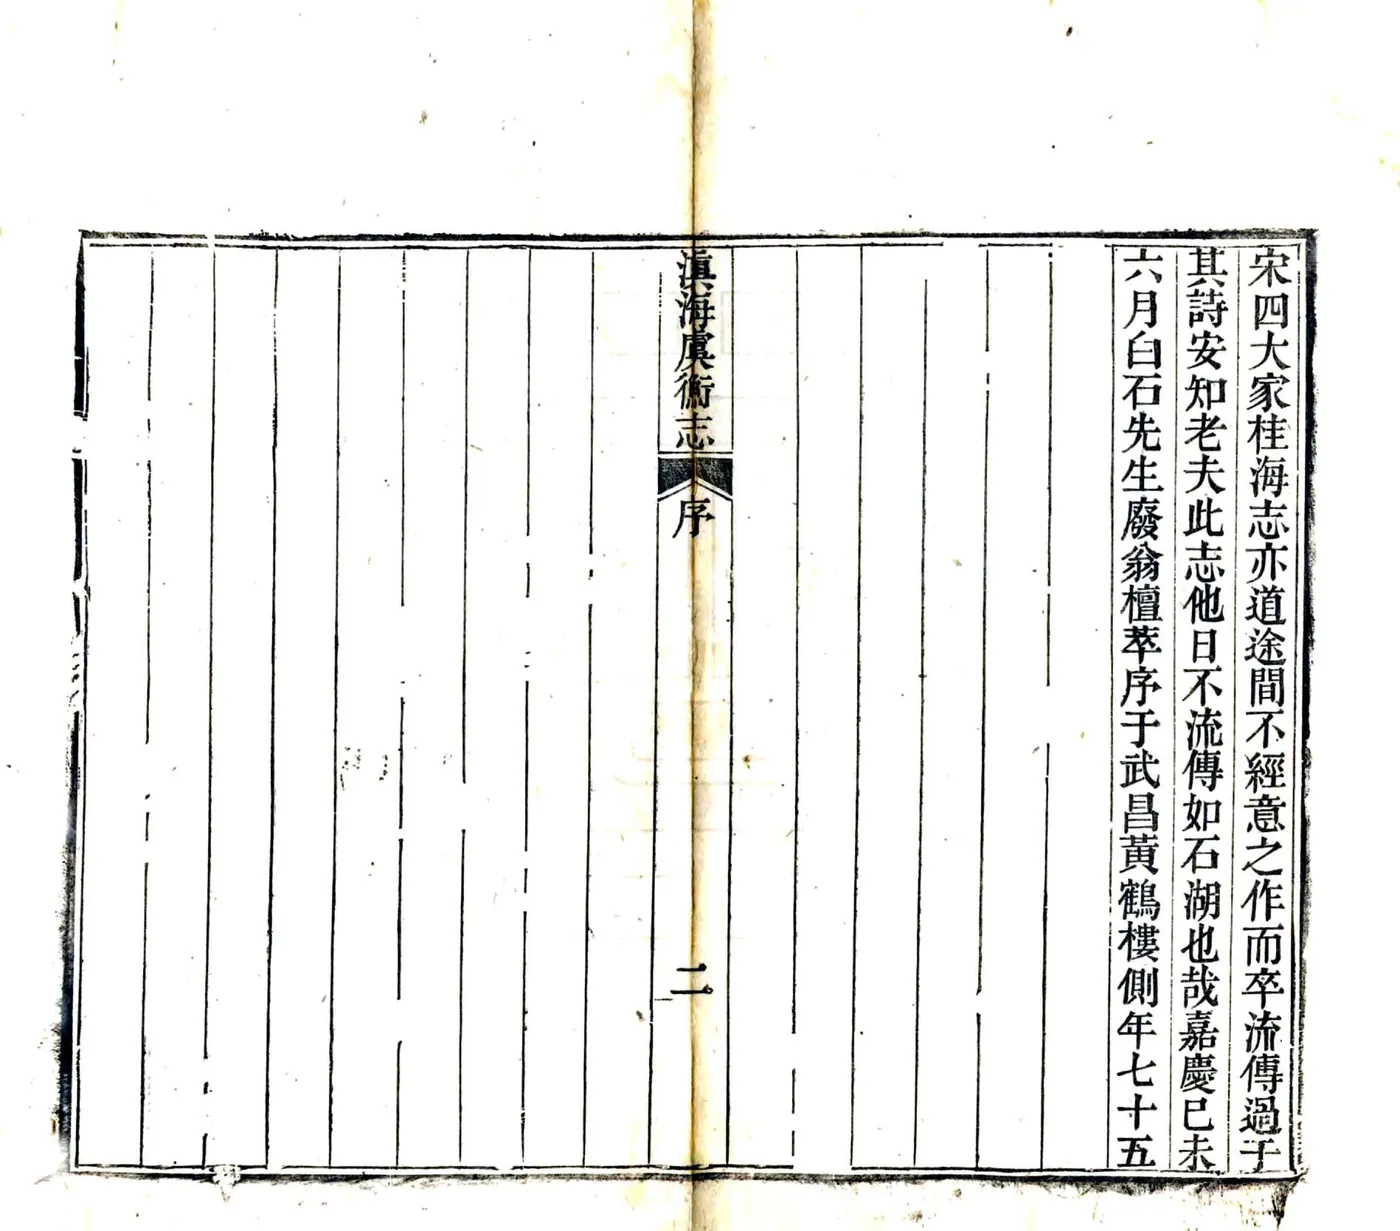 宋四大家桂海志亦道途間不經意之作而卒流傳過于
其詩安知老夫此志他日不流傳如石湖也哉嘉慶已未
六月白石先生廢翁檀萃序于武昌黃鶴樓側年七十五
滇海虞衡志
序
二